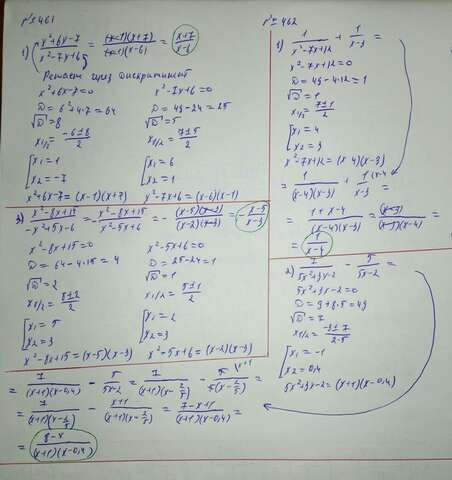 № 461
1) (x²+6x-7)/(x²-7x+6) = ((x-1)(x+7))/((x-1)(x-6)) = (x+7)/(x-6)
Решаем через дискриминант
x²+6x-7=0
D = 6²+4·7 = 64
√D = 8
x₁/₂ = (-6±8)/2
[x₁ = 1
x₂ = -7
x²+6x-7 = (x-1)(x+7)
x²-7x+6=0
D = 49-24 = 25
√D = 5
x₁/₂ = (7±5)/2
[x₁ = 6
x₂ = 1
x²-7x+6 = (x-6)(x-1)
2) (x²-8x+15)/(-x²+5x-6) = -(x²-8x+15)/(x²-5x+6) = -((x-5)(x-3))/((x-2)(x-3)) = -(x-5)/(x-2)
x²-8x+15=0
D = 64-4·15 = 4
√D = 2
x₁/₂ = (8±2)/2
[x₁ = 5
x₂ = 3
x²-8x+15 = (x-5)(x-3)
x²-5x+6=0
D = 25-24 = 1
√D = 1
x₁/₂ = (5±1)/2
[x₁ = 2
x₂ = 3
x²-5x+6 = (x-2)(x-3)
№ 462
1) 1/(x²-7x+12) + 1/(x-3) =
x²-7x+12=0
D = 49-4·12 = 1
√D = 1
x₁/₂ = (7±1)/2
[x₁ = 4
x₂ = 3
x²-7x+12 = (x-4)(x-3)
= 1/((x-4)(x-3)) + 1/(x-3) =
= (1+x-4)/((x-4)(x-3)) = (x-3)/((x-3)(x-4)) =
= 1/(x-4)
2) 7/(5x²+3x-2) - 5/(5x-2) =
5x²+3x-2=0
D = 9+8·5 = 49
√D = 7
x₁/₂ = (-3±7)/(2·5)
[x₁ = -1
x₂ = 0,4
5x²+3x-2 = (x+1)(x-0,4)
= 7/((x+1)(x-0,4)) - 5/(5x-2) = 7/((x+1)(x-2/5)) - 5/(5(x-2/5)) =
= 7/((x+1)(x-2/5)) - (x+1)/((x+1)(x-2/5)) = (7-x+1)/((x+1)(x-0,4)) =
= (8-x)/((x+1)(x-0,4))